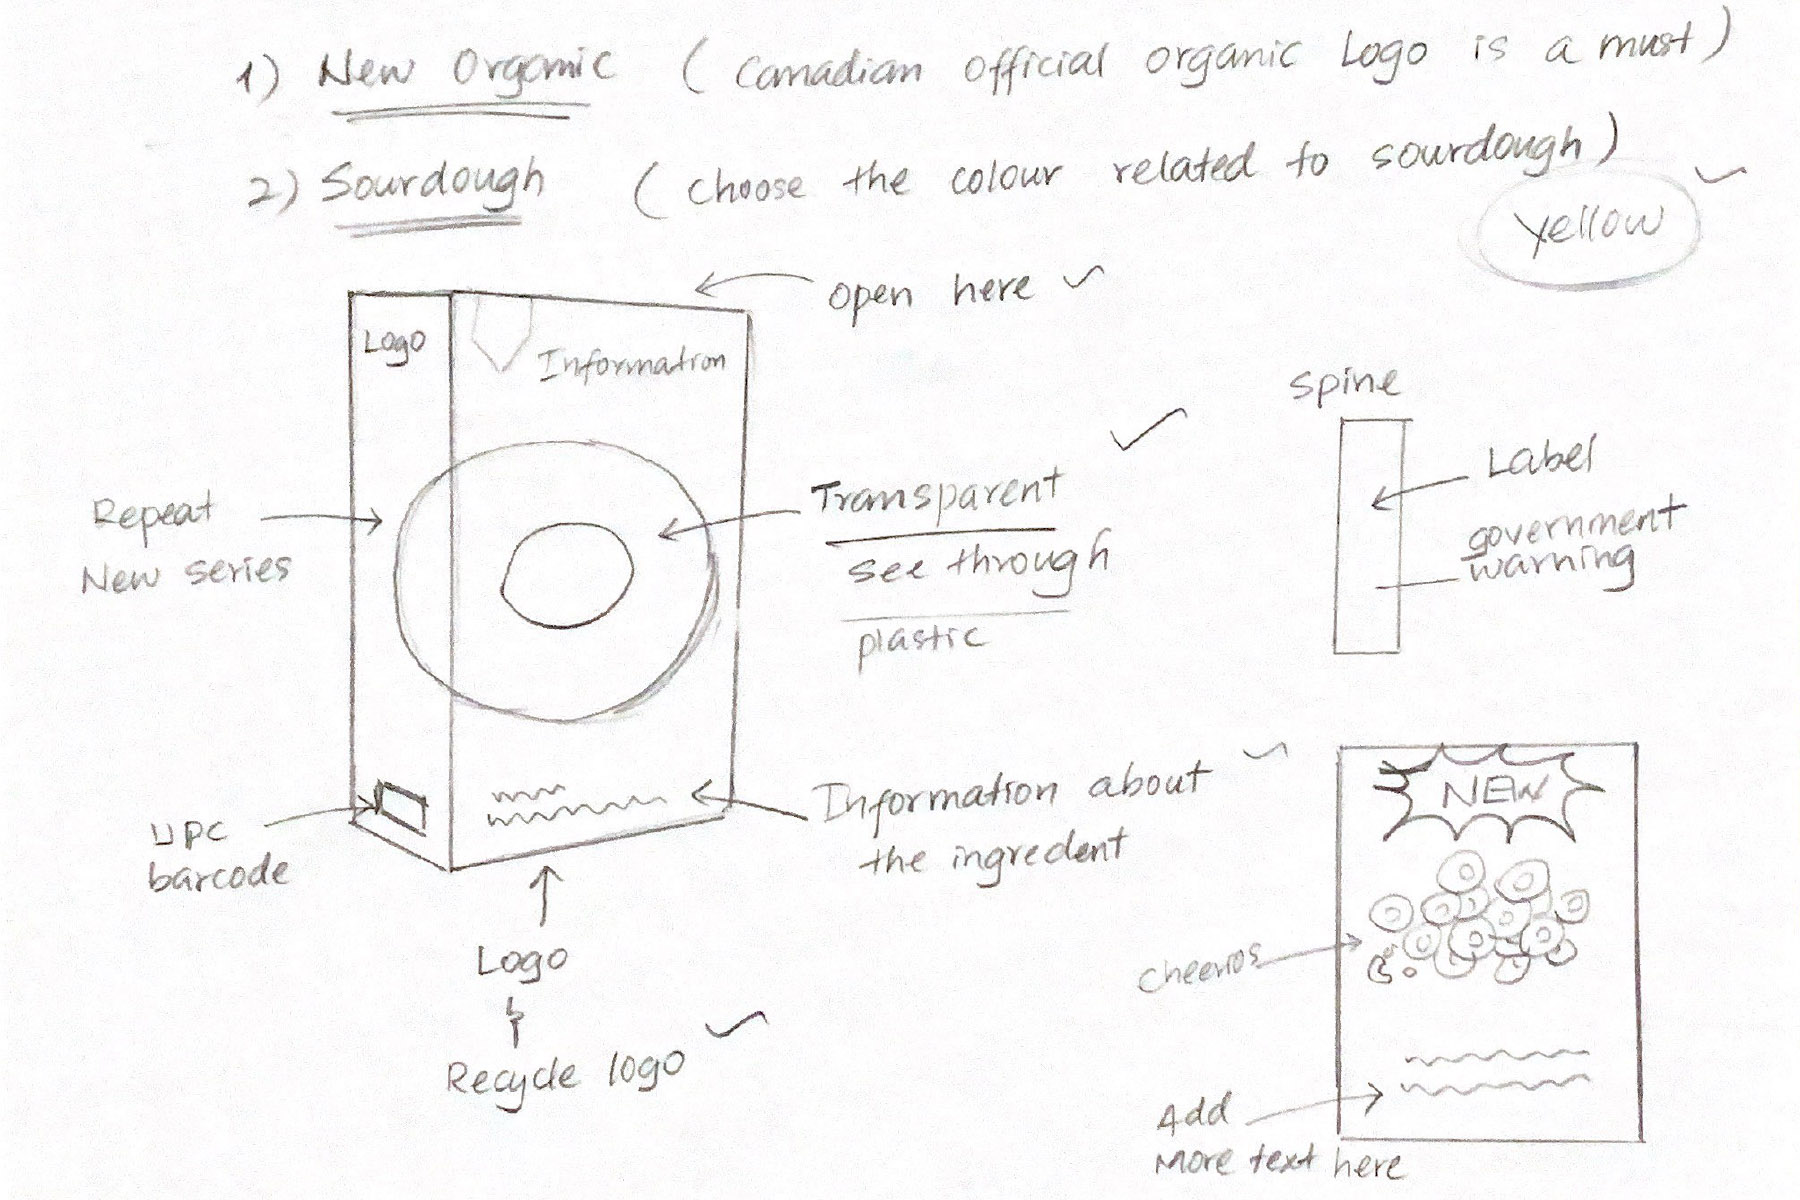 1) New Organic (Canadian official organic Logo is a must)
2) Sourdough (choose the colour related to sourdough)
yellow
open here
Logo
Information
Repeat
New series
Transparent
see through
plastic
UPC
barcode
Information about
the ingredent
Logo
Recycle logo
spine
Label
government
warning
NEW
cheerios
Add
More text here